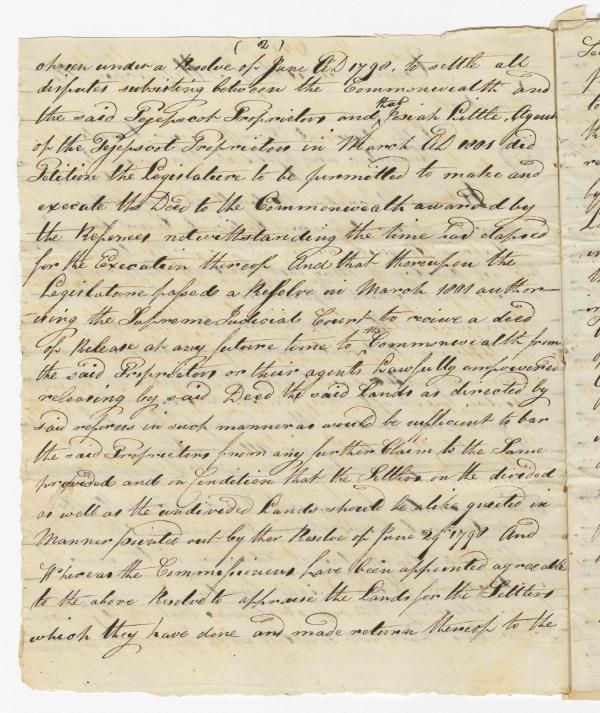 (2)
chosen under a Resolve of June AD 1798. to settle all
disputes subsisting between the Commonwealth and
the said Pejepscot Proprietors and that Josiah Little, Agent
of the Pejepscot Proprietors in March AD 1801 did
Petition the Legislature to be permitted to make and
execute the Deed to the Commonwealth awarded by
the Referees notwithstanding the time had elapsed
for the Execution thereof And that thereupon the
Legislature passed a Resolve in March 1801 author-
ising the Supreme Judicial Court to recive a deed
of Release at any future time to the Commonwealth from
the said Proprietors or their agents Lawfully empowered
releasing by said Deed the said Lands as directed by
said referees in such manner as would be sufficient to bar
the said Proprietors from any further Claim to the Same
provided and on Condition that the Settlers on the divided
as well as the undivided Lands should be alike quieted in
Manner pointed out by the Resolve of June 1798 And
Whereas the Commissioners have been appointed agreeable
to the above Resolve to appraise the Lands for the Settlers
which they have done and made return thereof to the